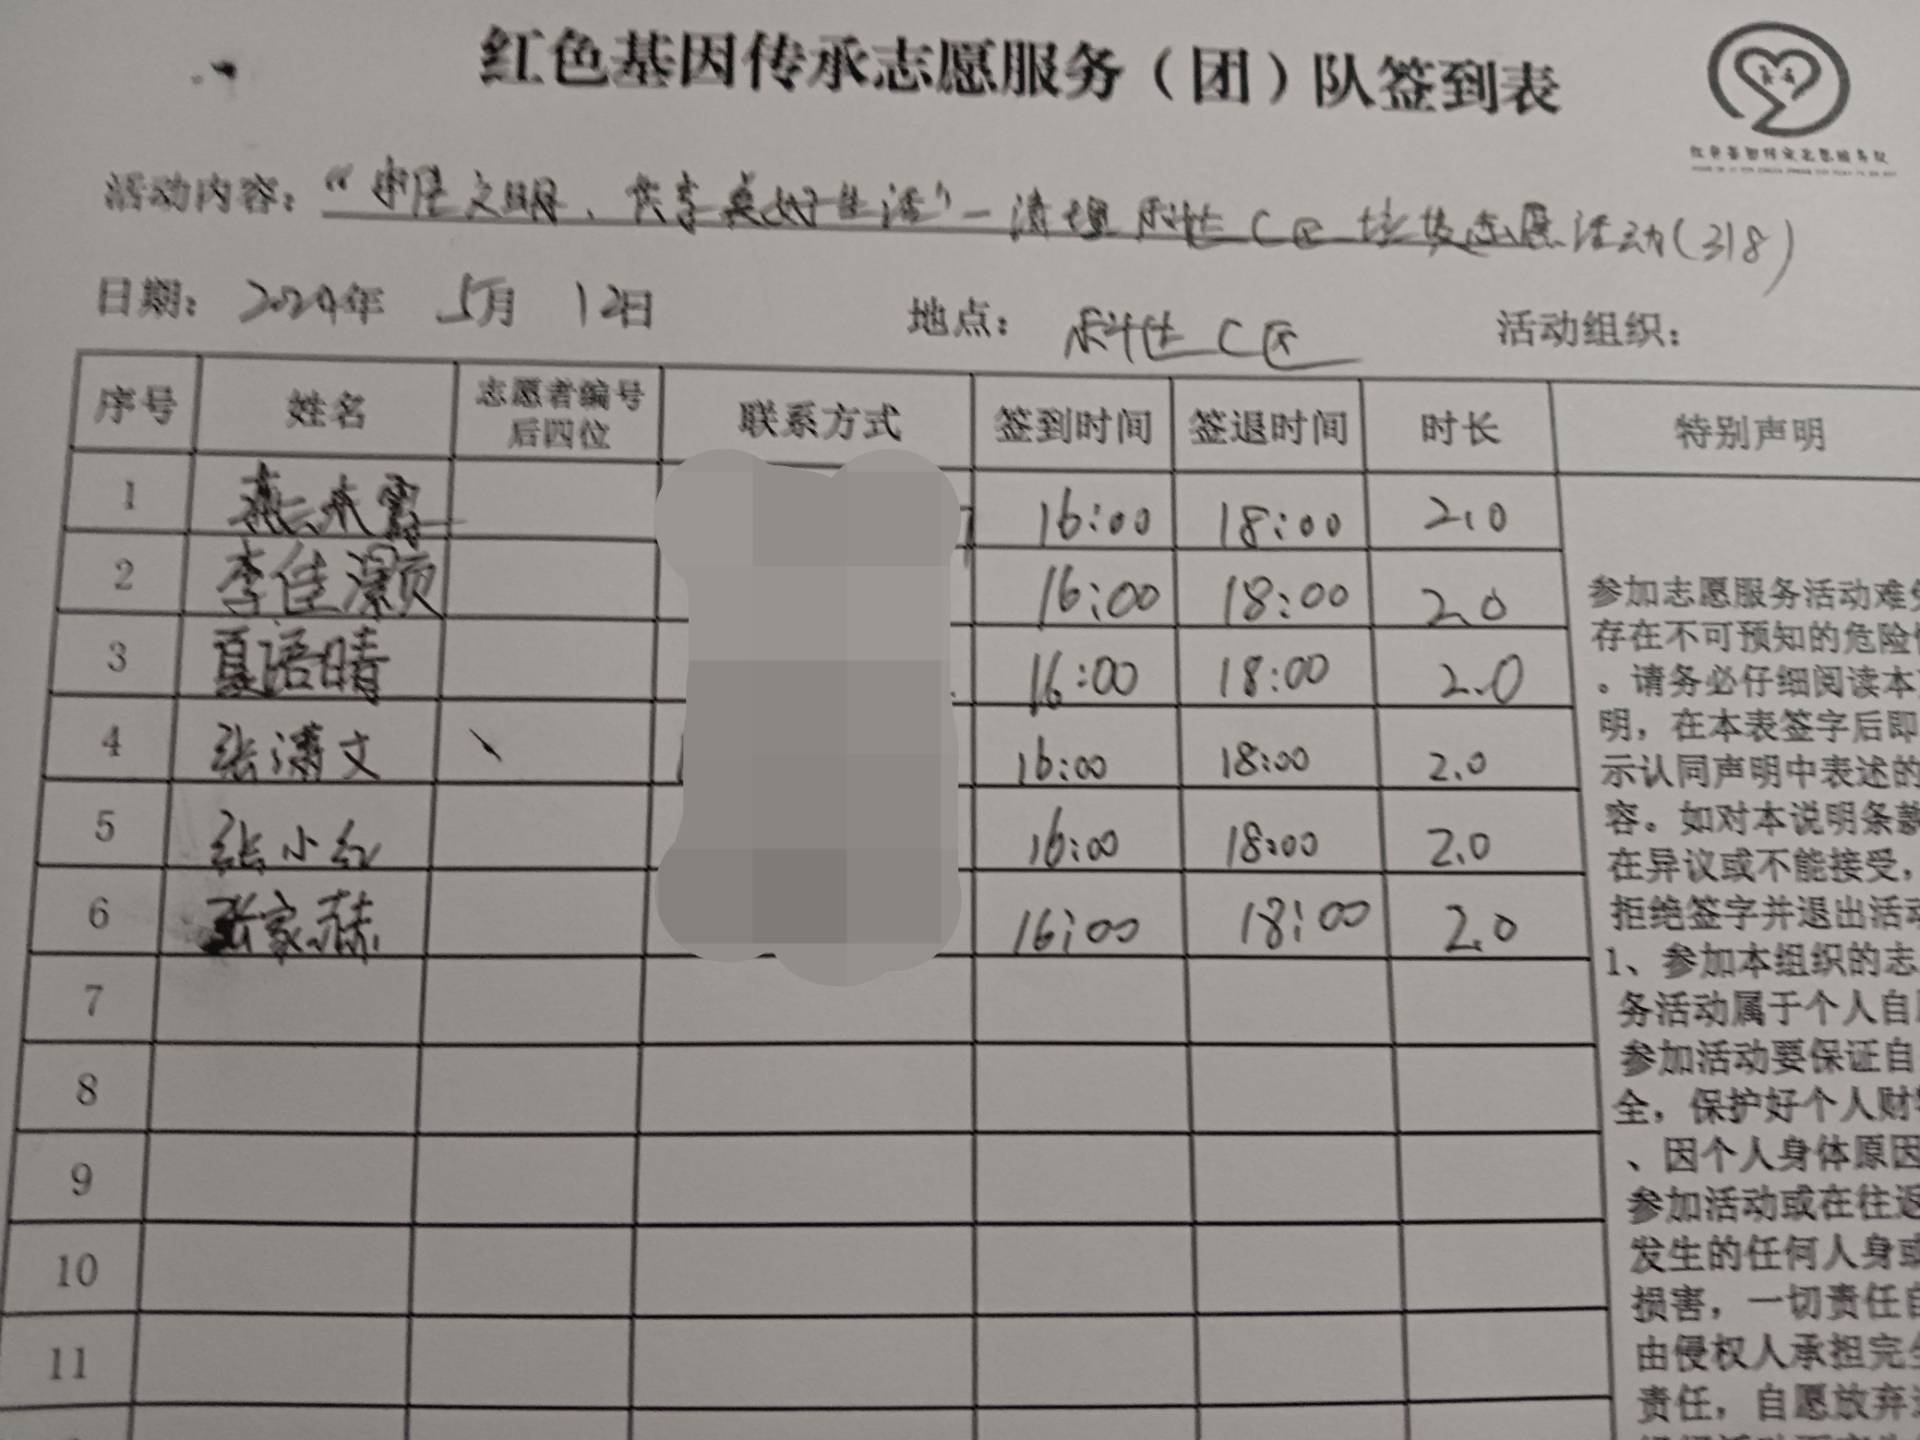 红色基因传承志愿服务（团）队签到表
活动内容：“ 文明、共享美好生活”－清理 C区垃圾志愿活动(318)
日期：2024年 5月 12日 地点： C区 活动组织：
序号 姓名 志愿者编号后四位 联系方式 签到时间 签退时间 时长 特别声明
1 16:00 18:00 2.0
2 李佳灏 16:00 18:00 2.0
3 夏语晴 16:00 18:00 2.0
4 张潇文 16:00 18:00 2.0
5 张小红 16:00 18:00 2.0
6 张家赫 16:00 18:00 2.0
7
8
9
10
11
参加志愿服务活动难免
存在不可预知的危险
。请务必仔细阅读本
明，在本表签字后即
示认同声明中表述的
容。如对本说明条款
在异议或不能接受，
拒绝签字并退出活动
1、参加本组织的志
务活动属于个人自愿
参加活动要保证自
全，保护好个人财
、因个人身体原因
参加活动或在往返
发生的任何人身或
损害，一切责任自
由侵权人承担完全
责任，自愿放弃